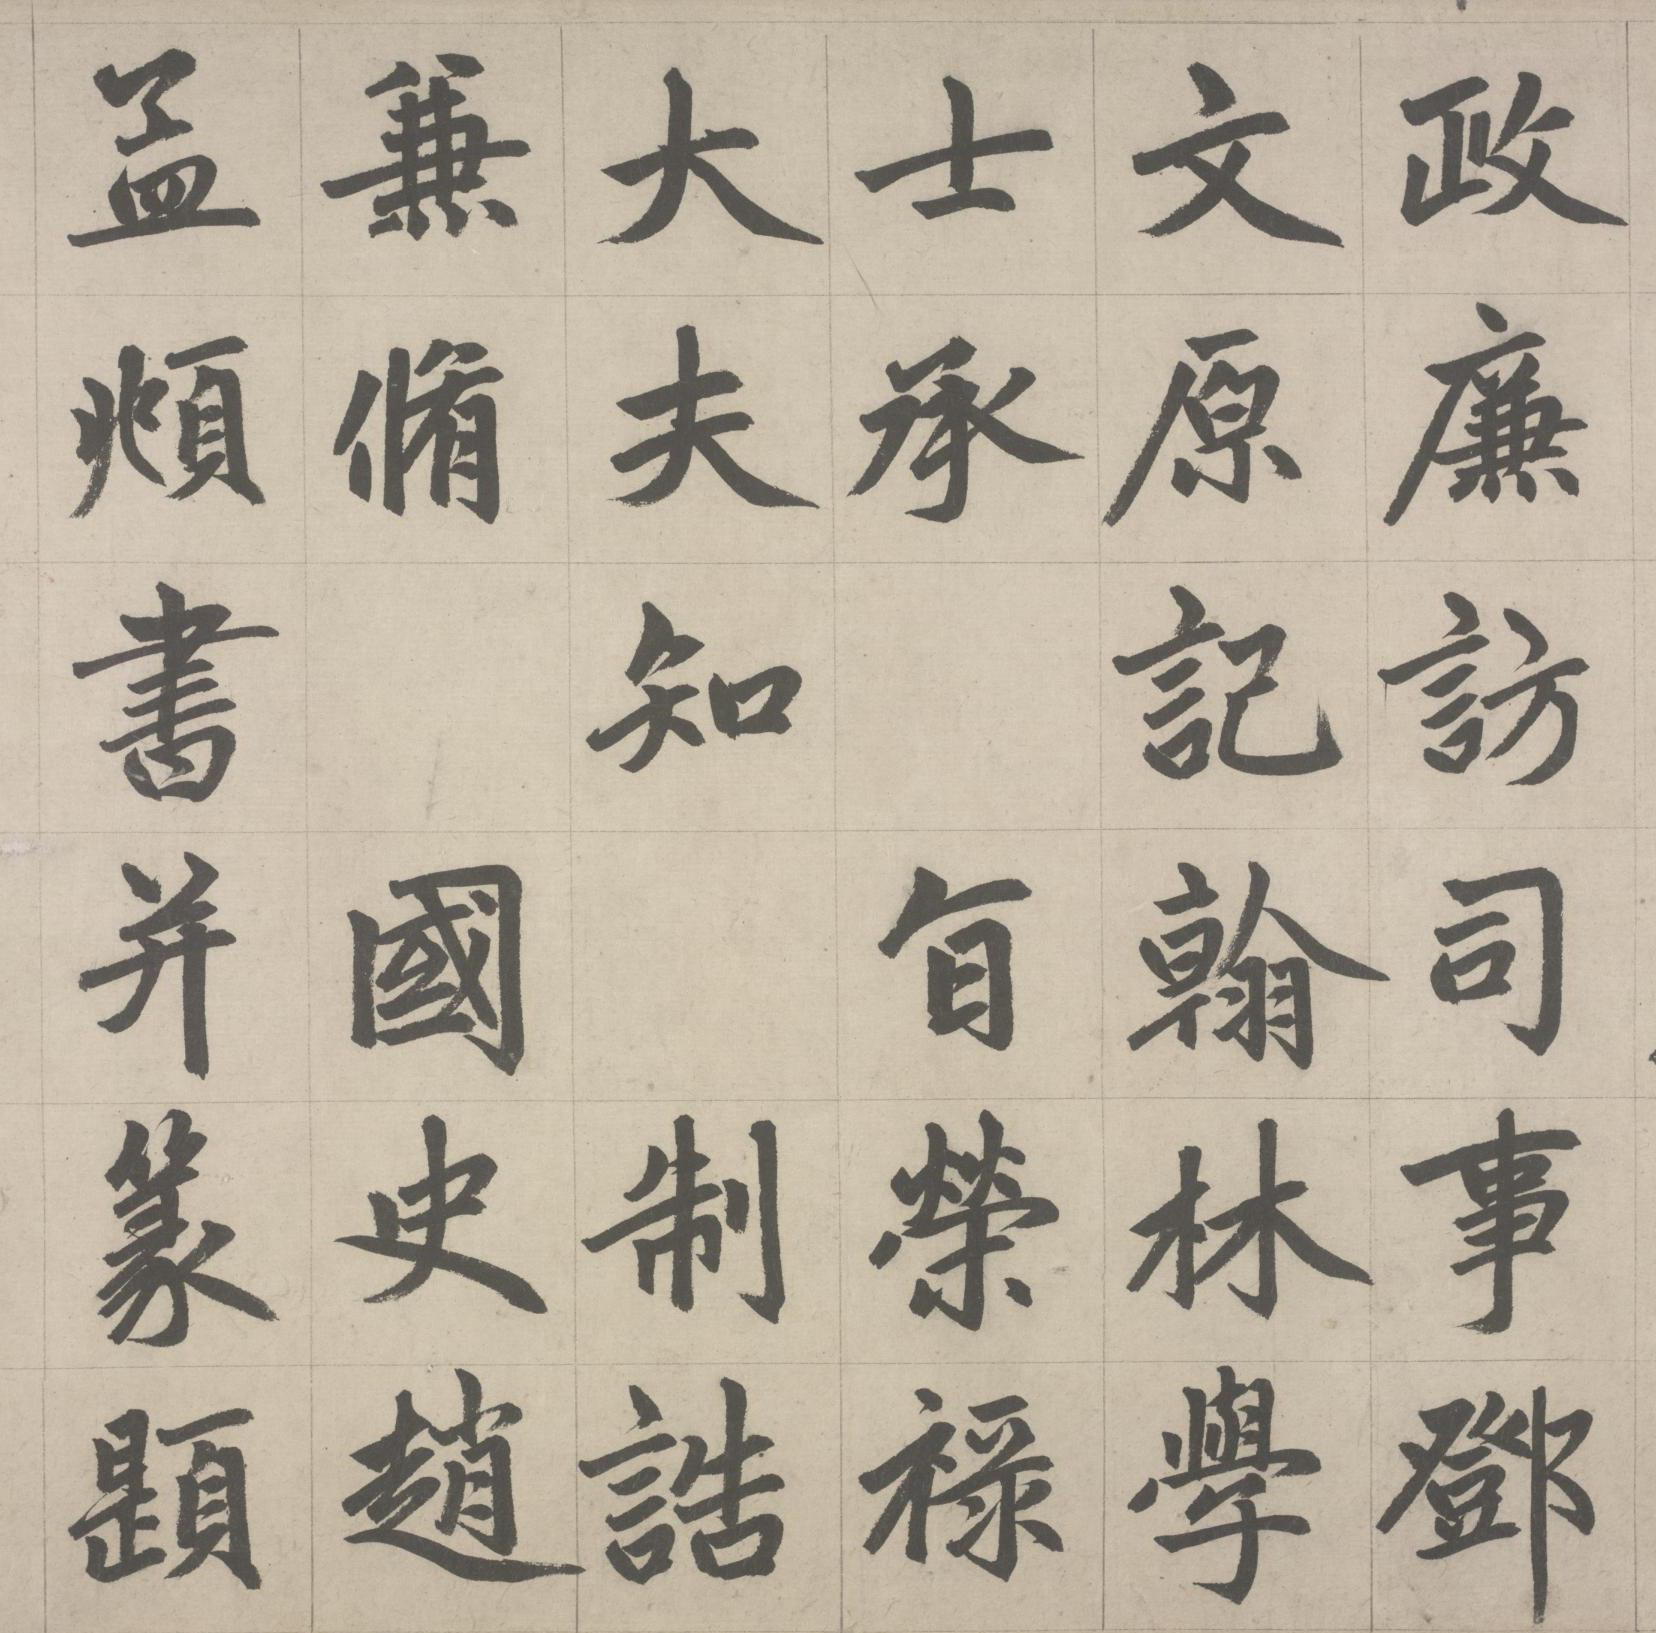 政廉訪司事鄧
文原記翰林學
士承 旨榮祿
大夫知 制誥
兼脩 國史趙
孟頫書并篆題